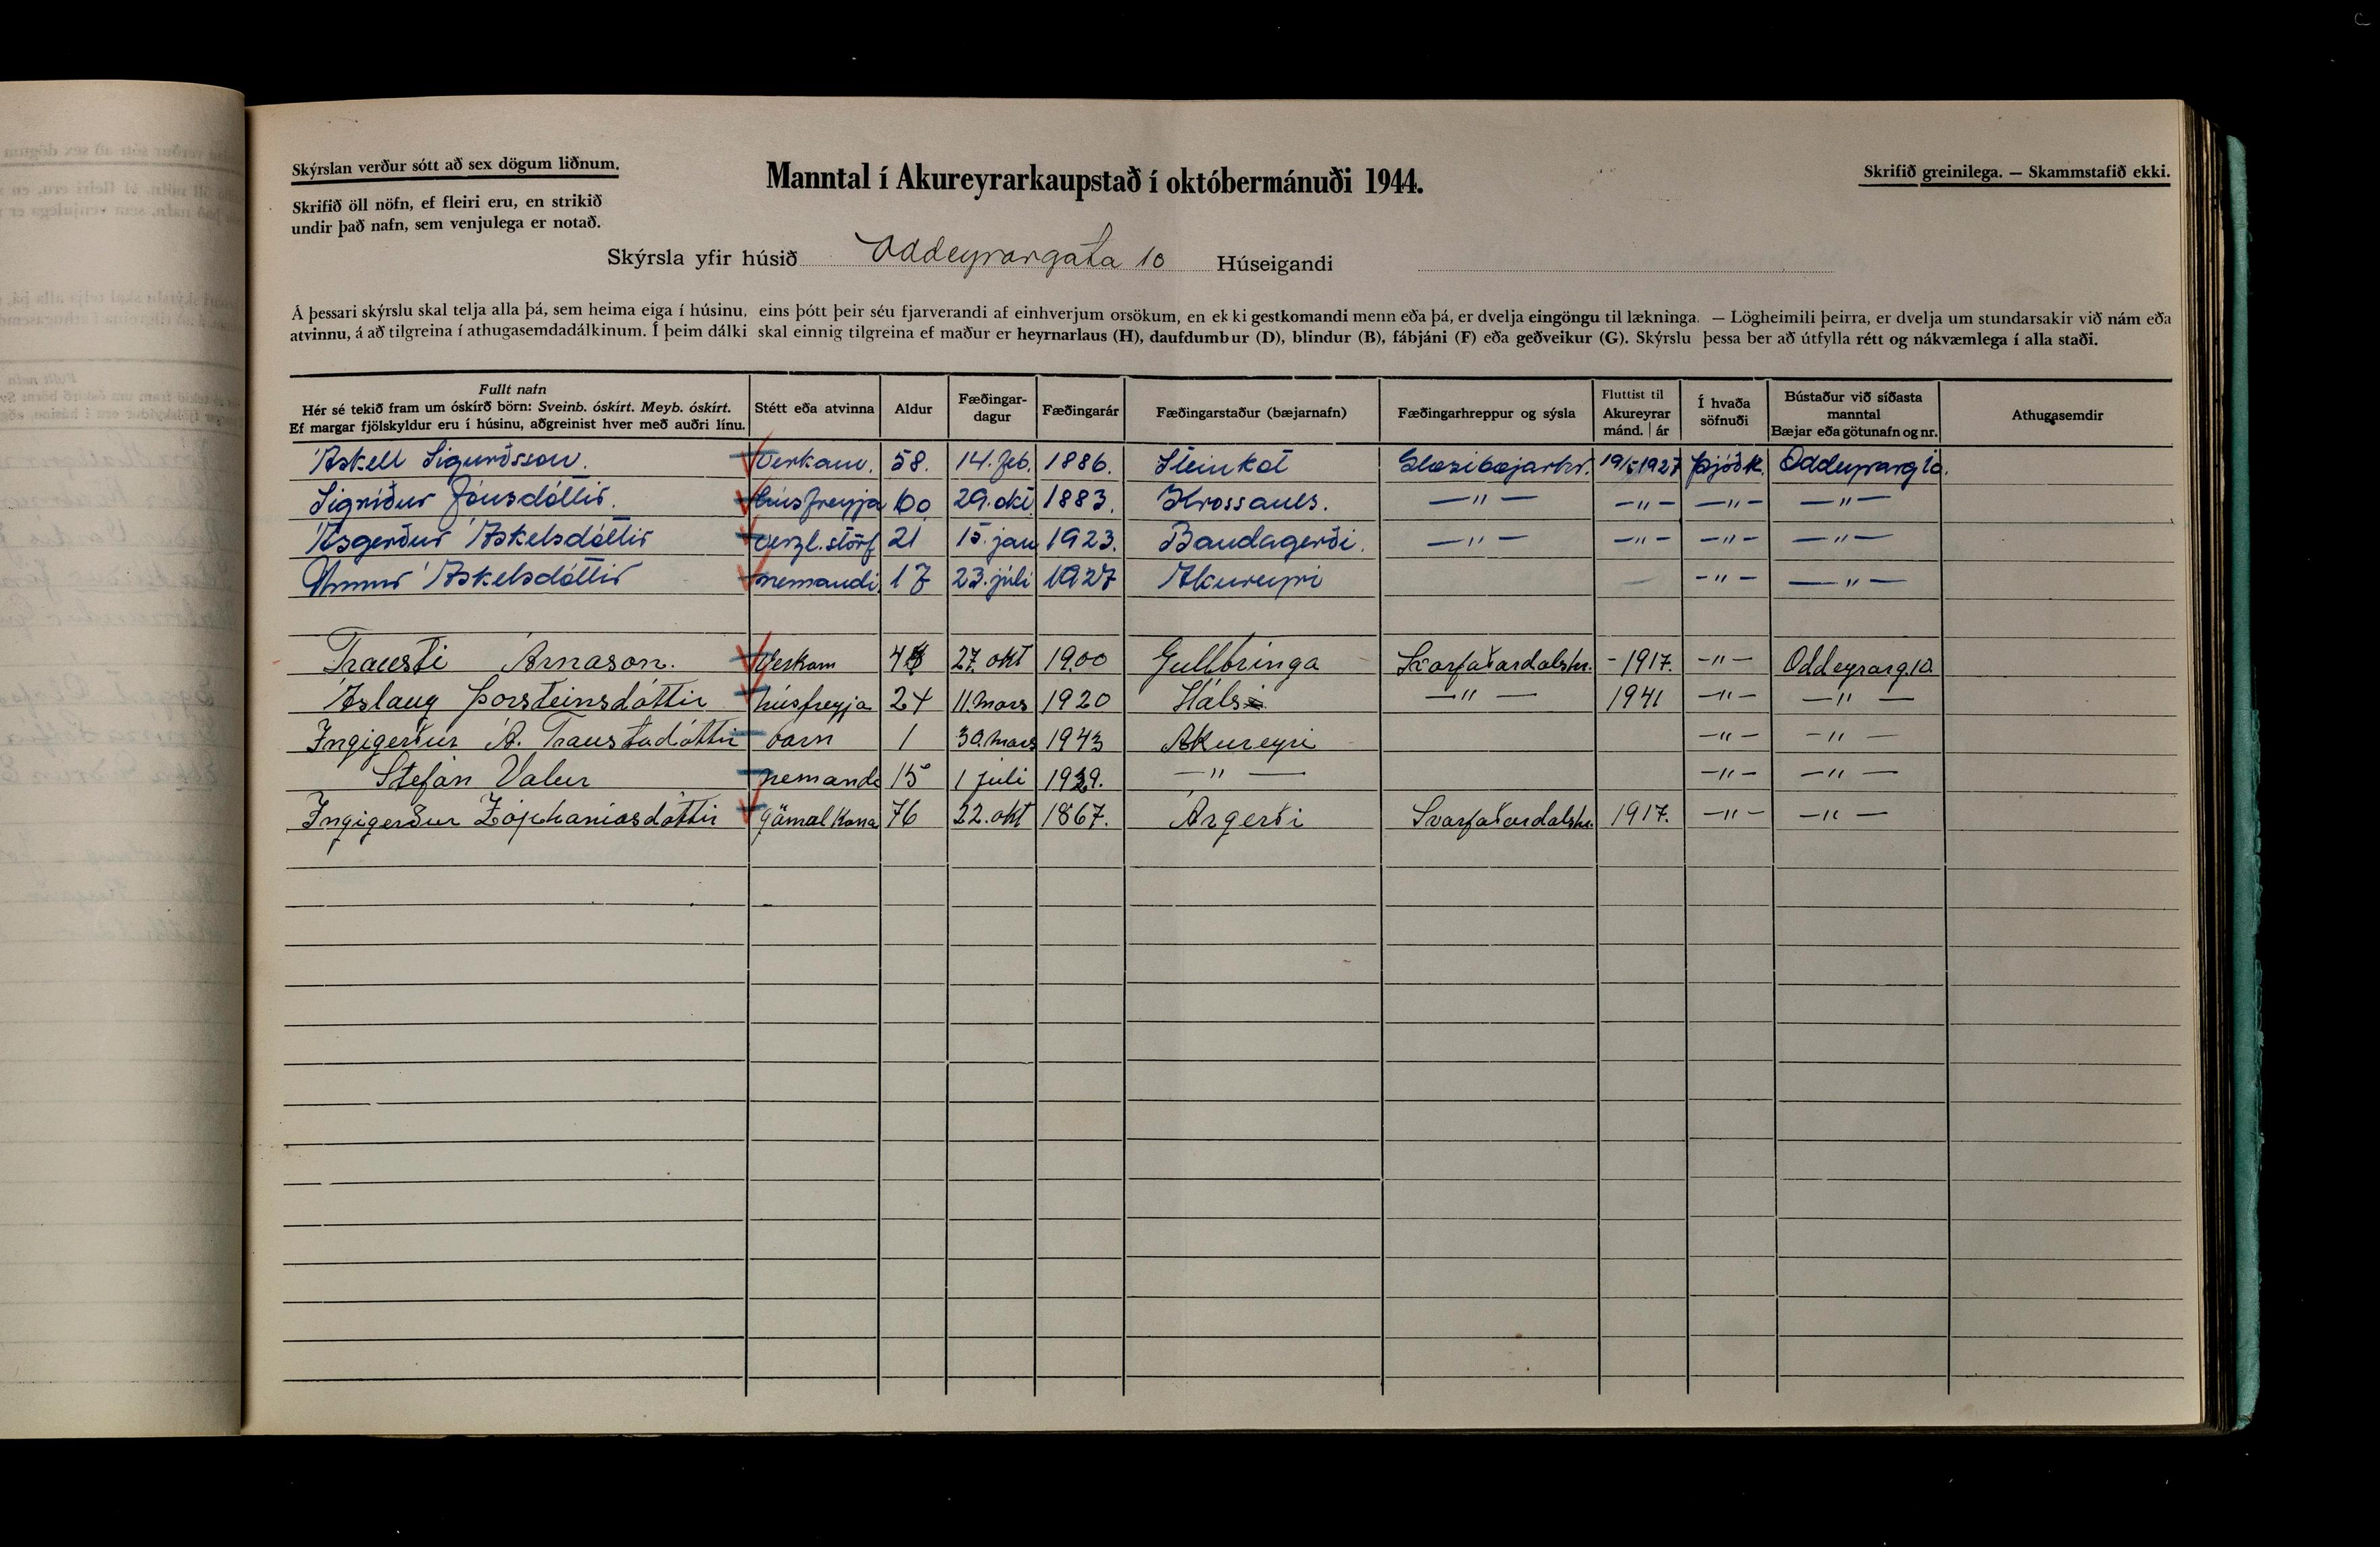 Skýrslan verður sótt að sex dögum liðnum.
Skrifið öll nöfn, ef fleiri eru, en strikið
undir það nafn, sem venjulega er notað.
Manntal í Akureyrarkaupstað í októbermánuði 1944.
Skrifið greinilega. — Skammstafið ekki.
Skýrsla yfir húsið Oddeyrargata 10 Húseigandi
Á þessari skýrslu skal telja alla þá, sem heima eiga í húsinu, eins þótt þeir séu fjarverandi af einhverjum orsökum, en ekki gestkomandi menn eða þá, er dvelja eingöngu til lækninga. — Lögheimili þeirra, er dvelja um stundarsakir við nám eða
atvinnu, á að tilgreina í athugasemdadálkinum. Í þeim dálki skal einnig tilgreina ef maður er heyrnarlaus (H), daufdumbur (D), blindur (B), fábjáni (F) eða geðveikur (G). Skýrslu þessa ber að útfylla rétt og nákvæmlega í alla staði.
Fullt nafn
Hér sé tekið fram um óskírð börn: Sveinb. óskírt. Meyb. óskírt.
Ef margar fjölskyldur eru í húsinu, aðgreinist hver með auðri línu.
Stétt eða atvinna
Aldur
Fæðingar-
dagur
Fæðingarár
Fæðingarstaður (bæjarnafn)
Fæðingarhreppur og sýsla
Fluttist til
Akureyrar
mánd. | ár
Í hvaða
söfnuði
Bústaður við síðasta
manntal
Bæjar eða götunafn og nr.
Athugasemdir
Áskell Sigurðsson. Verkam. 58. 14. feb. 1886. Steinkot Glæsibæjarhr. 19/5 1927 Þjóðk. Oddeyrarg 10.
Sigríður Jónsdóttir. húsfreyja 60 29. okt 1883. Krossanes. —"— —"— —"— —"—
Ásgerður Áskelsdóttir verzl. störf 21 15. jan 1923. Bandagerði. —"— —"— —"— —"—
Unnur Áskelsdóttir nemandi 17 23. júlí 1927 Akureyri —"— —"—
Trausti Árnason. Verkam 27. okt 1900 Gullbringa Svarfaðardalshr. - 1917. —"— Oddeyrarg. 10.
Áslaug Þorsteinsdóttir húsfreyja 24 11. mars 1920 Háls —"— 1941 —"— —"—
Ingigerður Á. Traustadóttir barn 1 30. mars 1943 Akureyri —"— —"—
Stefán Valur nemandi 15 1 júlí 1929. —"— —"— —"—
Ingigerður Zóphaníasdóttir Gömul kona 76 22. okt 1867. Árgerði Svarfaðardalshr. 1917. —"— —"—